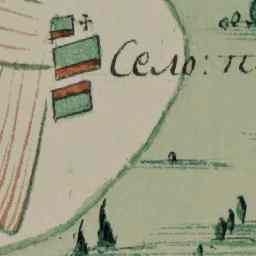 Село: п